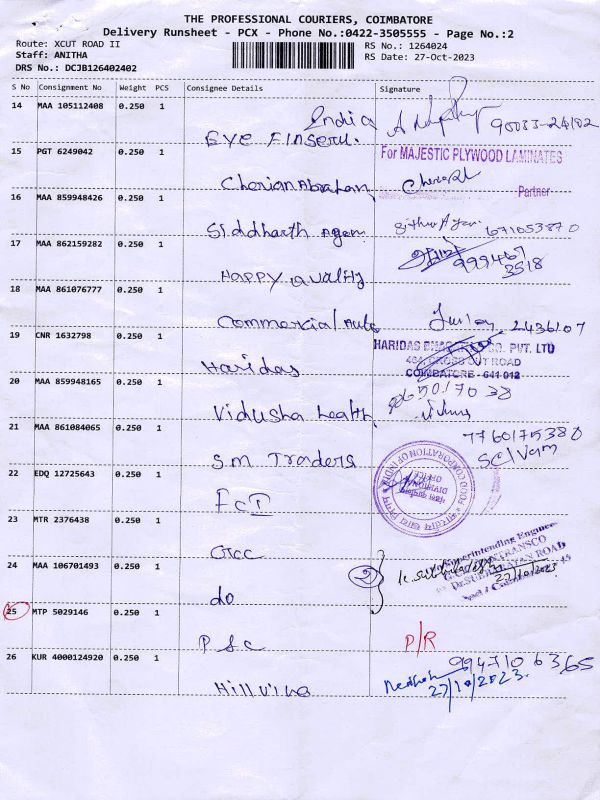 THE PROFESSIONAL COURIERS, COIMBATORE
Delivery Runsheet - PCX - Phone No.:0422-3505555 - Page No.:2
Route: XCUT ROAD II RS No.: 1264024
Staff: ANITHA RS Date: 27-Oct-2023
DRS No.: DCJB126402402
S No Consignment No Weight PCS Consignee Details Signature
14 MAA 105112408 0.250 1
India
Eye Finserv. 90033-24182
15 PGT 6249042 0.250 1
For MAJESTIC PLYWOOD LAMINATES
Cherian Abraham
Partner
16 MAA 859948426 0.250 1
Siddharth Agen 671053870
17 MAA 862159282 0.250 1
Happy Quality 999467
3518
18 MAA 861076777 0.250 1
Commercial Auto 2436107
19 CNR 1632798 0.250 1
HARIDAS CO. PVT. LTD
CROSS CUT ROAD
COIMBATORE - 641 012
Haridas
20 MAA 859948165 0.250 1
Vidusha Health
21 MAA 861084065 0.250 1
7760175380
S.M Traders Selvam
22 EDQ 12725643 0.250 1
FOOD CORPORATION OF INDIA
DIVISIONAL
OFFICE
FCI
23 MTR 2376438 0.250 1
Superintending Engineer
GCC
24 MAA 106701493 0.250 1
2
27/10/2023
do
25 MTP 5029146 0.250 1
PSC P/R
26 KUR 4000124920 0.250 1
994710 6365
Hillvine 27/10/2023.